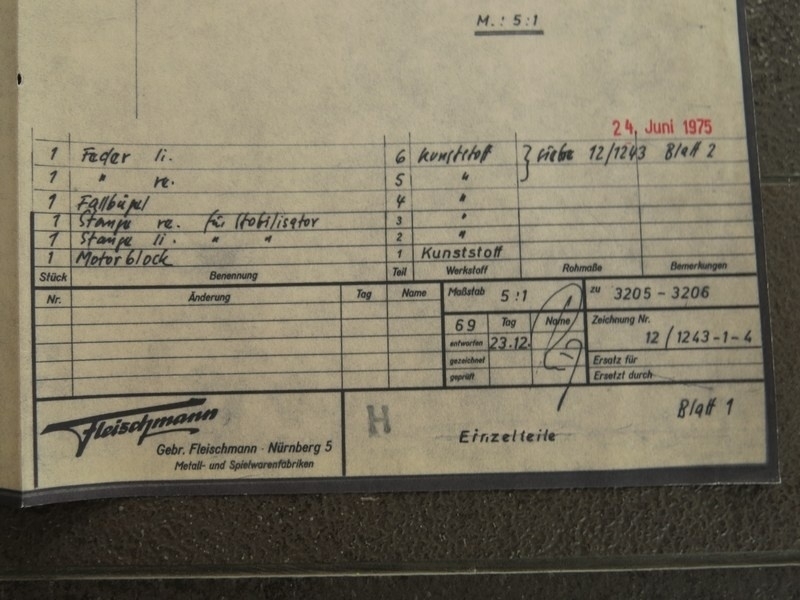 M.: 5:1
24. Juni 1975
1 Feder li. 6 Kunststoff } siehe 12/1243 Blatt 2
1 " re. 5 "
1 Fallbügel 4 "
1 Stange re. für Stabilisator 3 "
1 Stange li. " " 2 "
1 Motorblock 1 Kunststoff
Stück Benennung Teil Werkstoff Rohmaße Bemerkungen
Nr. Änderung Tag Name
Maßstab 5:1 zu 3205 - 3206
69 Tag Name Zeichnung Nr.
entworfen 23.12. 12/1243-1-4
gezeichnet Ersatz für
geprüft Ersetzt durch
Fleischmann
Gebr. Fleischmann · Nürnberg 5
Metall- und Spielwarenfabriken
H
Einzelteile
Blatt 1